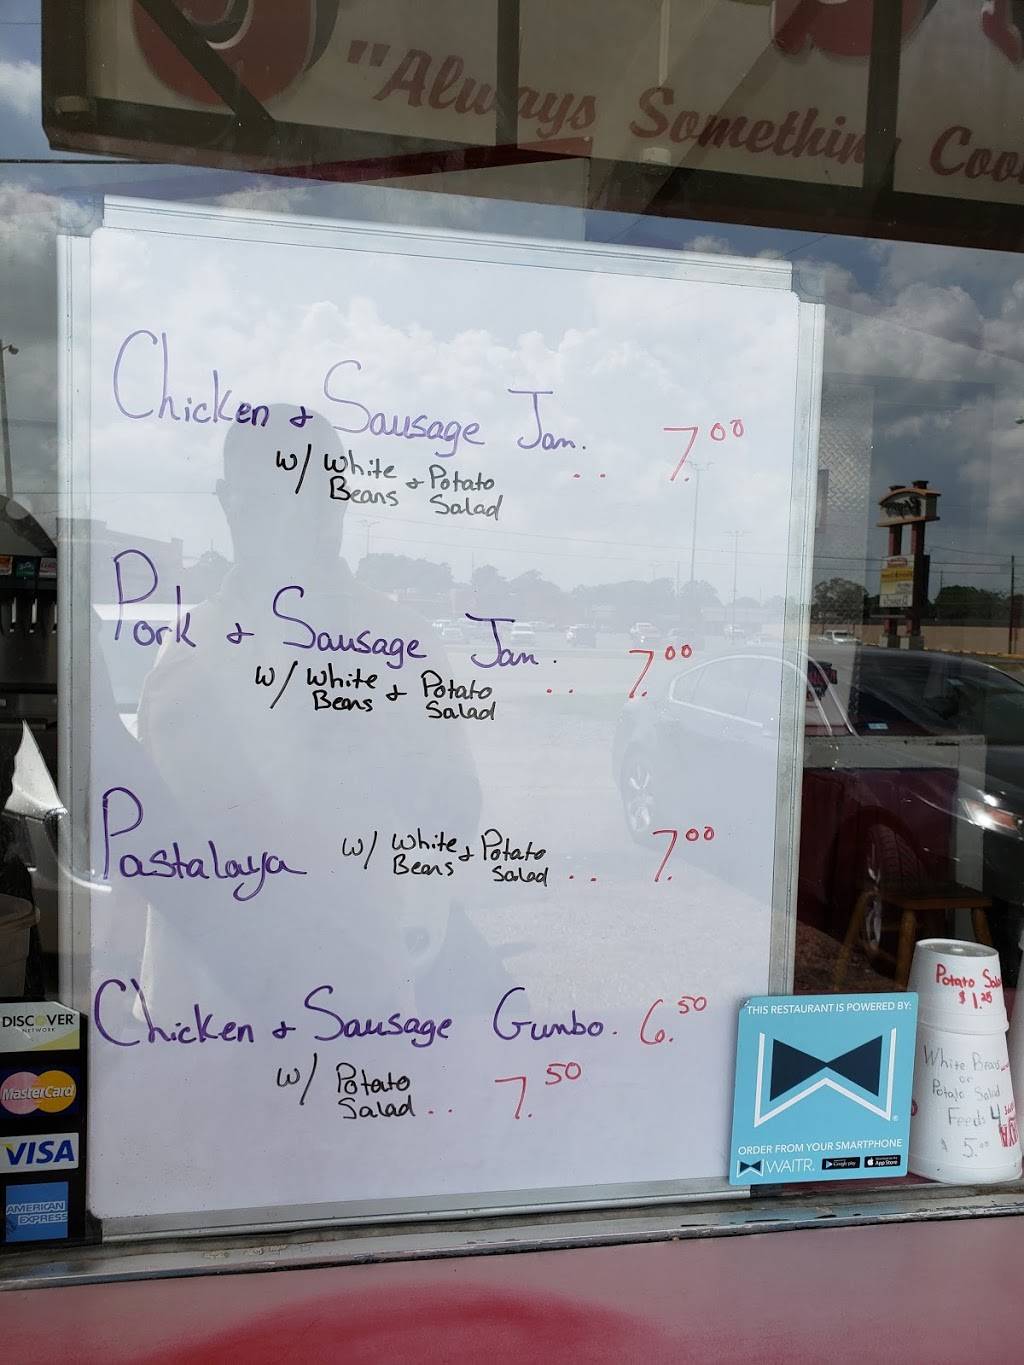 "Always Somethin Coo
Chicken & Sausage Jam. .. 7.00
w/ White Beans & Potato Salad
Pork & Sausage Jam. .. 7.00
w/ White Beans & Potato Salad
Pastalaya w/ White Beans & Potato Salad .. 7.00
Chicken & Sausage Gumbo. 6.50
w/ Potato Salad .. 7.50
DISCOVER
NETWORK
MasterCard
VISA
AMERICAN
EXPRESS
THIS RESTAURANT IS POWERED BY:
ORDER FROM YOUR SMARTPHONE
WAITR.
Google play
App Store
Potato Sala
$1.25
White Beans
or
Potato Salad
Feeds 4
$5.00